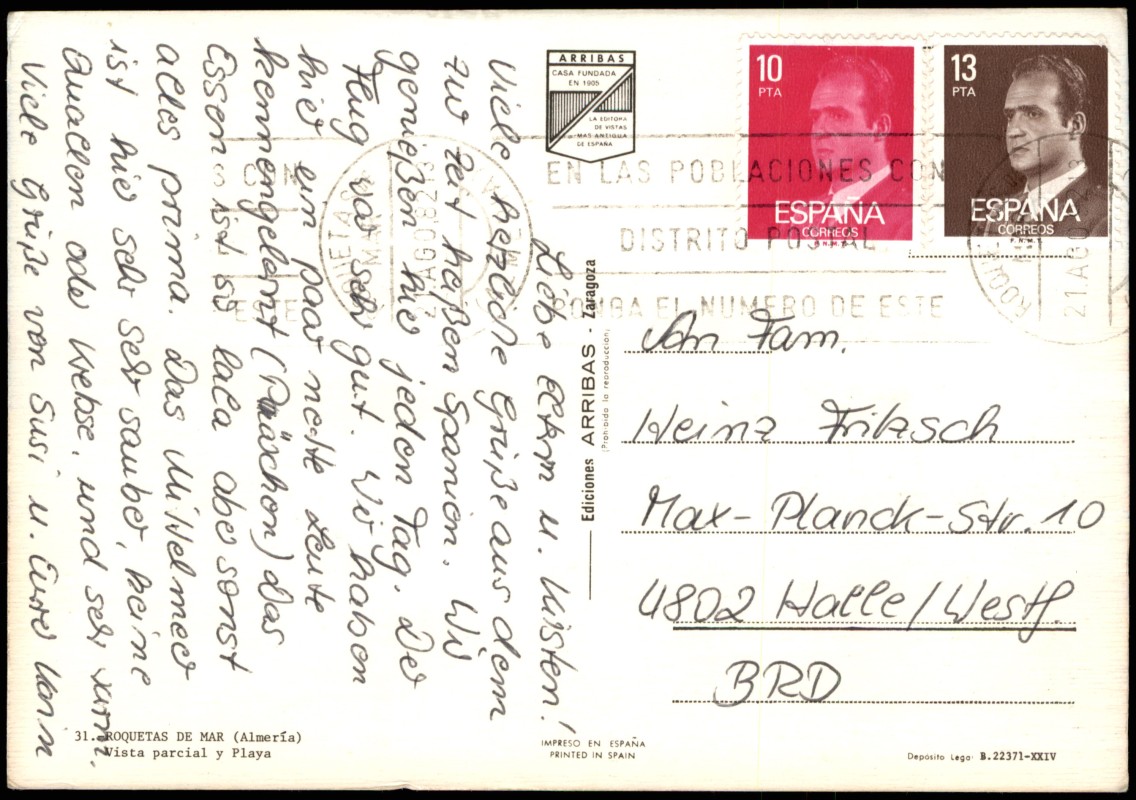 Liebe Eltern u. Kirsten!
Viele herzliche Grüße aus dem
zur Zeit heißen Spanien. Wir
genießen hier jeden Tag. Der
Flug war sehr gut. Wir haben
hier ein paar nette Leute
kennengelernt (Pärchen) Das
Essen ist so lala aber sonst
alles prima. Das Mittelmeer
ist hier sehr sehr sauber, keine
Quallen oder Krebse, und sehr warm.
Viele Grüße von Susi u. Eurer
ARRIBAS
CASA FUNDADA
EN 1905
LA EDITORA
DE VISTAS
MAS ANTIGUA
DE ESPAÑA
10
PTA
ESPAÑA
CORREOS
F.N.M.T.
13
PTA
ESPAÑA
CORREOS
F.N.M.T.
EN LAS POBLACIONES CON
DISTRITO POSTAL
PONGA EL NUMERO DE ESTE
ROQUETAS
21.AGO 82
An Fam.
Heinz Fritzsch
Max-Planck-Str. 10
4802 Halle/Westf.
BRD
Ediciones ARRIBAS - Zaragoza
(Prohibida la reproducción)
31. ROQUETAS DE MAR (Almería)
Vista parcial y Playa
IMPRESO EN ESPAÑA
PRINTED IN SPAIN
Depósito Legal B.22371-XXIV